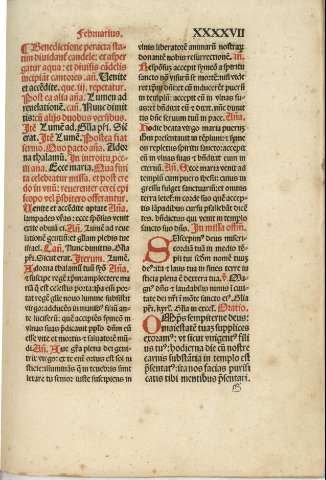 Februarius.
XXXXVII
Benedictione peracta sta
tim diuidantur candele: et asper
gatur aqua: et diuisis cãdelis
incipiant cantores. añ. Venite
et accẽdite. que. iij. repetatur.
Post ea alia añã. Lumen ad
reuelationẽ. cañ. Nunc dimit
tis: cũ alijs duobus versibus.
Itẽ Lumẽ ad. Glia pr̃i. Sic
erat. Itẽ Lumẽ. Postea fiat
sermo. Quo pacto añã. Ador
na thalamũ. In introitu pe
ni añã. Ecce maria. Qua fini
ta celebratur missa. et post cre
do in vnũ: reuerenter cerei epi
scopo vel p̃sbitero offerantur.
Venite et accẽdite aptate Añã.
lampades ṽras: ecce spõsus venit
exite obuiã ei. Añ. Lumen ad reue
lationẽ gentiũ: et gliam plebis tue
israel. Cañ. Nunc dimittis. Glia
pr̃i. Sicut erat. Iterum. Lumẽ.
Adorna thalamũ tuũ syõ Añã.
et suscipe regẽ xp̃m: amplectere ma
riã q̃ est celestis porta: ip̃a eñi por
tat regẽ glie noui luminis subsistit
virgo: adducẽs in manib̾ filiũ an
te luciferũ: quẽ accipiẽs symeõ in
vlnas suas p̃dicauit pp̃lo dñm eũ
esse vite et mortis: et saluatorẽ mũ
di. Añ. Aue gr̃a plena dei geni
trix virgo: ex te eni ortus est sol iu
sticie: illuminãs q̃ in tenebris sunt
letare tu senior iuste suscipiens in
vlnis liberatorẽ animarũ nostrarũ:
donantẽ nobis resurrectionẽ. iij.
Respõsũ accepit symeõ a spiritu
sancto nõ visurũ se mortẽ: nisi vide
ret xp̃m dñi: et cũ inducerẽt puerũ
in templũ: accepit eũ in vlnas su
as: et bñdixit deũ et dixit. nũc dimit
tis dñe seruum tuũ in pace. Añã.
Hodie beata virgo maria puerũ
iesum presentauit in tẽplum: et syme
on repletus spiritu sancto: accepit
eũ in vlnas suas: et bñdixit eum in
eternũ. Añ. Ecce maria venit ad
templum sanctũ cum deifico. gemma
glorie fulget sanctuariũ: et omnis
terra letetur. in corde suo quẽ accep
tis lapidibus cursu psallebãt dicẽ
tes. bñdictus qui venit in templo
sancto suo dñs. In missa officiũ.
Suscepimus deus miseri
cordiã tuã in medio tẽ
pli tui: scdm nomen tuũ
de9 ita et laus tua in fines terre iu
sticia plena ẽ dextera tua. v̾ Ma
gn9 dñs et laudabilis nimis in ciui
tate dei nr̃i in mõte sancto ei9. Glia
pr̃i. kyrl. Glia in excel. Oratio.
Omp̃s sempiterne deus:
maiestatẽ tuaz supplices
exoram9: vt sicut vnigenit9 fili
us tu9: hodierna die cũ nostre
carnis substãtia in templo est
p̃sentat9: ita nos facias purifi
catis tibi mentibus p̃sentari.